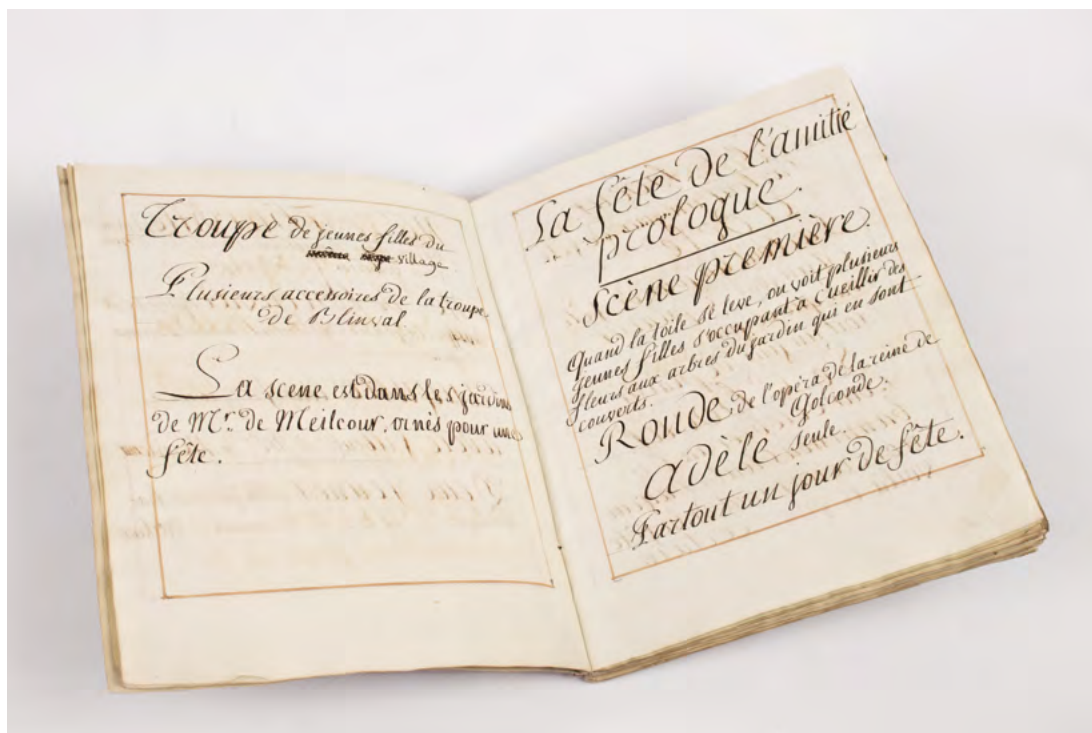 Troupe de jeunes filles du
village
Plusieurs accessoires de la troupe
de Blinval
La scene est dans les jardins
de Mr. de Meilcour, ornés pour une
fête.
La fête de l'amitié
prologue.
Scène première.
Quand la toile se leve, on voit plusieurs
jeunes filles s'occupant à cueillir des
fleurs aux arbres du jardin qui en sont
couverts.
Ronde de l'opéra de la reine de
Golconde.
Adèle seule.
Partout un jour de fête.